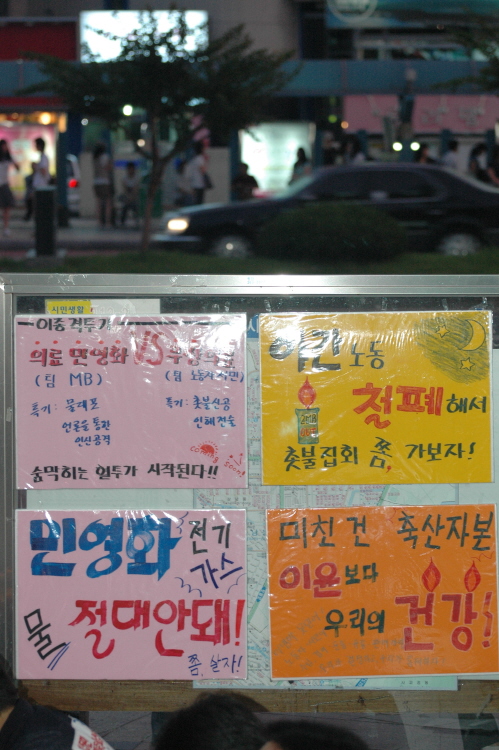 시민생활
이종격투기
의료민영화 VS 무상의료
(팀 MB) (팀 노동자시민)
특기: 물대포 특기: 촛불신공
언론을 통한 인해전술
인신공격
COMING SOON!
숨막히는 혈투가 시작된다!!
야간노동
철폐해서
촛불집회 쫌, 가보자!
민영화 전기
가스
물 절대안돼!
쫌, 살자!
미친 건 축산자본
이윤보다
우리의 건강!